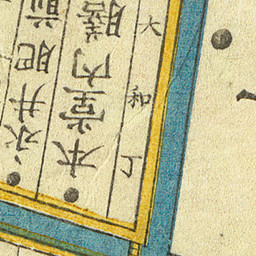 大和丁
本堂内膳
永井肥前